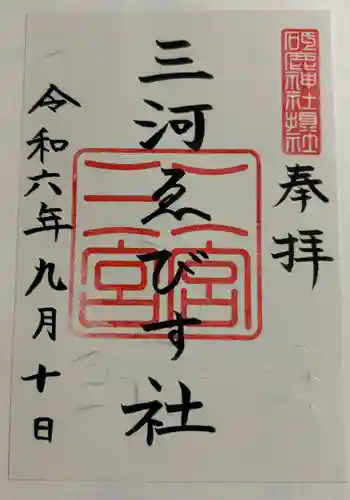 奉拝
砥鹿神社境内末社
三河ゑびす社
三河一宮
令和六年九月十日